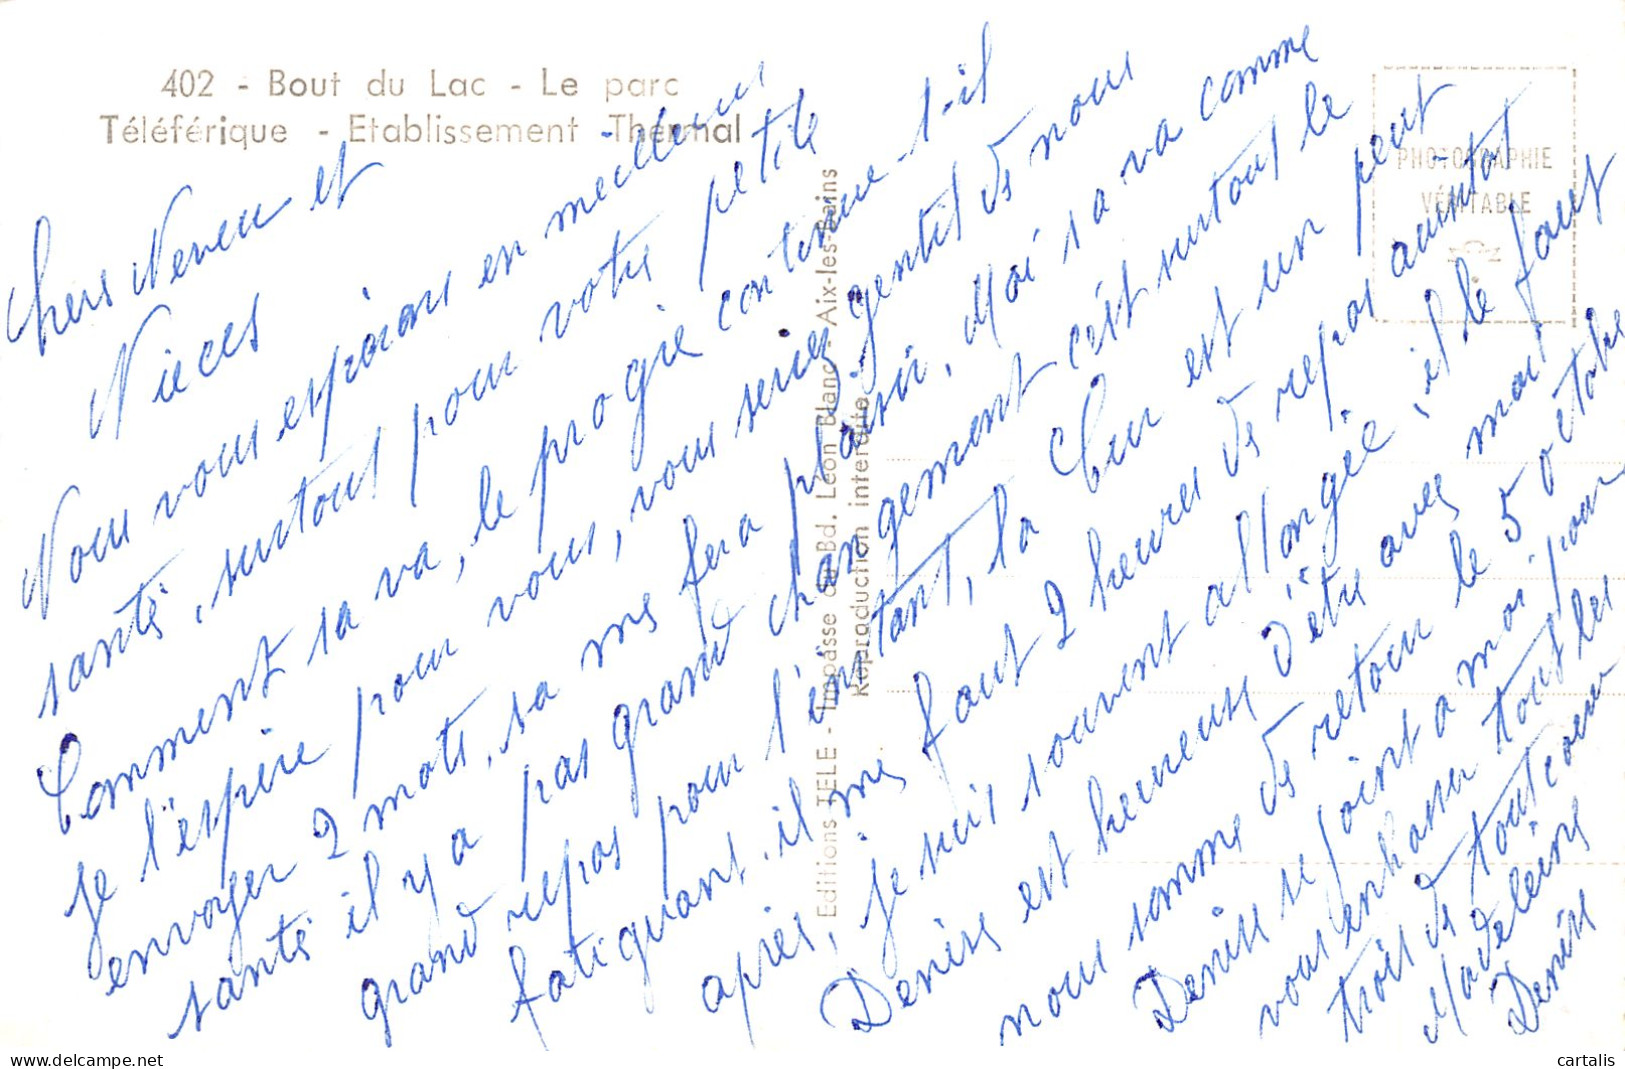 402 - Bout du Lac - Le parc
Téléférique - Etablissement Thermal
PHOTOGRAPHIE
VÉRITABLE
Editions TELE - Impasse du Bd. Léon Blanc - Aix-les-Bains
Reproduction interdite
Chers Neveu et
Nieces
Nous vous espérons en meilleur
santé, surtout pour votre petite
Comment sa va, le progrè continue-t-il
je l'espère pour vous, vous seriez gentil de nous
envoyer 2 mots, sa me fera plaisir, Moi sa va comme
santé il y a pas grand changement c'ét surtout le
grand repos pour l'instant, la Cur est un peut
fatiguant. il me faut 2 heures de repos autant
après, je suis souvent allongée, il le faut
Denise est heureuse d'être avec moi
nous somme de retour le 5 octobre
Denise se joint a moi pour
vous embrasser tout les
trois de tout coeur
Madeleine
Denise
cartalis